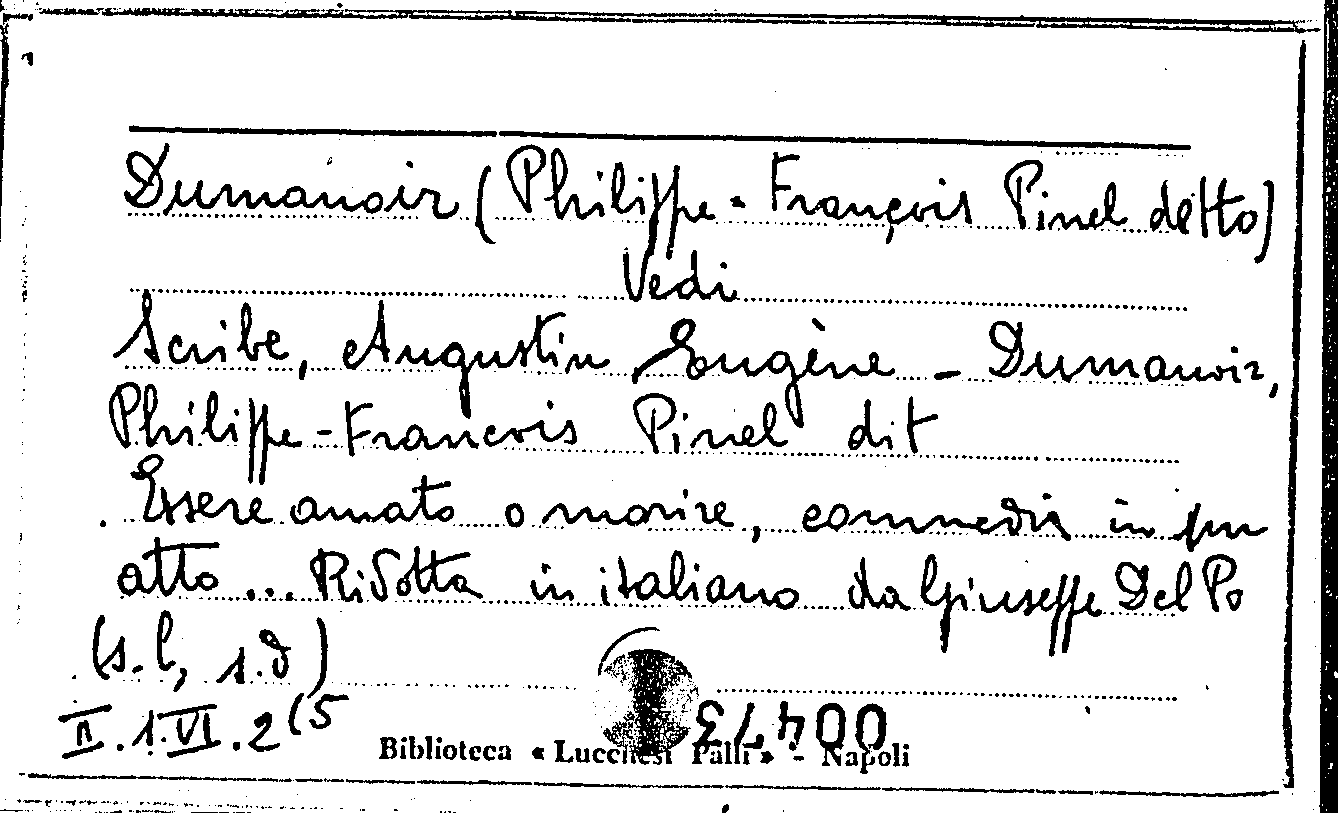 Dumanoir (Philippe-François Pinel detto)
Vedi
Scribe, Augustin Eugène - Dumanoir,
Philippe-Francois Pinel dit
Essere amato o morire, commedia in un
atto... Ridotta in italiano da Giuseppe Del Po
(s.l, s.d)
II.1.VI.2(5
00473
Biblioteca « Lucchesi Palli » - Napoli